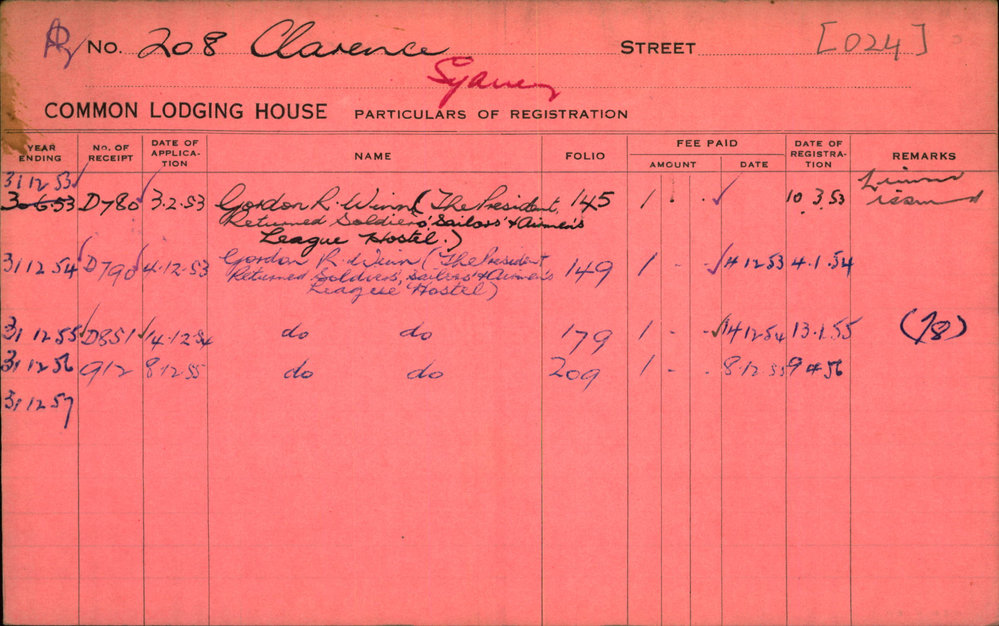 No. 208 Clarence STREET [024]
Sydney
COMMON LODGING HOUSE PARTICULARS OF REGISTRATION
YEAR ENDING No. OF RECEIPT DATE OF APPLICATION NAME FOLIO FEE PAID AMOUNT DATE DATE OF REGISTRATION REMARKS
31 12 53
30 6 53 D780 3.2.53 Gordon R. Winn (The President, 145 1 - - 10 3 53 Licence issued
Returned Soldiers', Sailors' & Airmen's
League Hostel.)
31 12 54 D790 4.12.53 Gordon R. Winn (The President 149 1 - - 4 12 53 4.1.54
Returned Soldiers', Sailors' & Airmen's
League Hostel)
31 12 55 D851 14.12.54 do do 179 1 - - 14 12 54 13.1.55 (78)
31 12 56 912 8.12.55 do do 209 1 - - 8.12.55 9 4 56
31 12 57